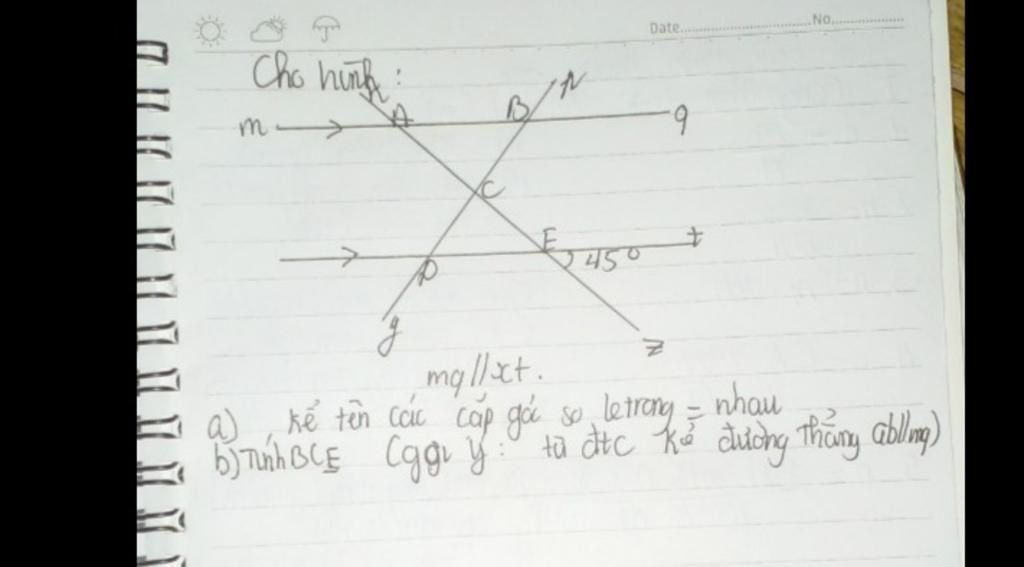 Date No
Cho hình:
m A B p q
C
E t
D 45°
y z
mq//xt.
a) kể tên các cặp gó so le trong = nhau
b) Tính BCE (gợi ý: từ đtC kẻ đường thẳng ab//mq)